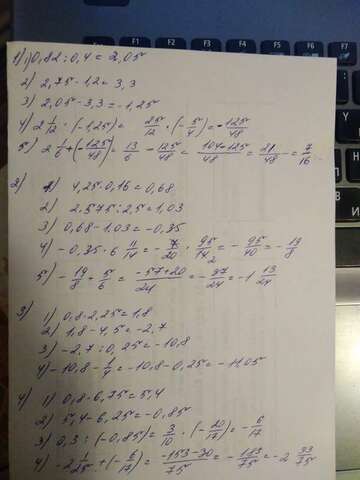 1) 1) 0,82 : 0,4 = 2,05
2) 2,75 · 1,2 = 3,3
3) 2,05 - 3,3 = -1,25
4) 2 1/12 · (-1,25) = 25/12 · (-5/4) = -125/48
5) 2 1/6 + (-125/48) = 13/6 - 125/48 = 104-125/48 = 21/48 = 7/16
2) 1) 4,25 · 0,16 = 0,68
2) 2,575 : 2,5 = 1,03
3) 0,68 - 1,03 = -0,35
4) -0,35 · 6 11/14 = -7/20 · 95/14 = -95/40 = -19/8
5) -19/8 + 5/6 = -57+20/24 = -37/24 = -1 13/24
3) 1) 0,8 · 2,25 = 1,8
2) 1,8 - 4,5 = -2,7
3) -2,7 : 0,25 = -10,8
4) -10,8 - 1/4 = -10,8 - 0,25 = -11,05
4) 1) 0,8 · 6,75 = 5,4
2) 5,4 - 6,25 = -0,85
3) 0,3 : (-0,85) = 3/10 · (-20/17) = -6/17
4) -2 1/25 + (-6/17) = -153-30/75 = -183/75 = -2 33/75